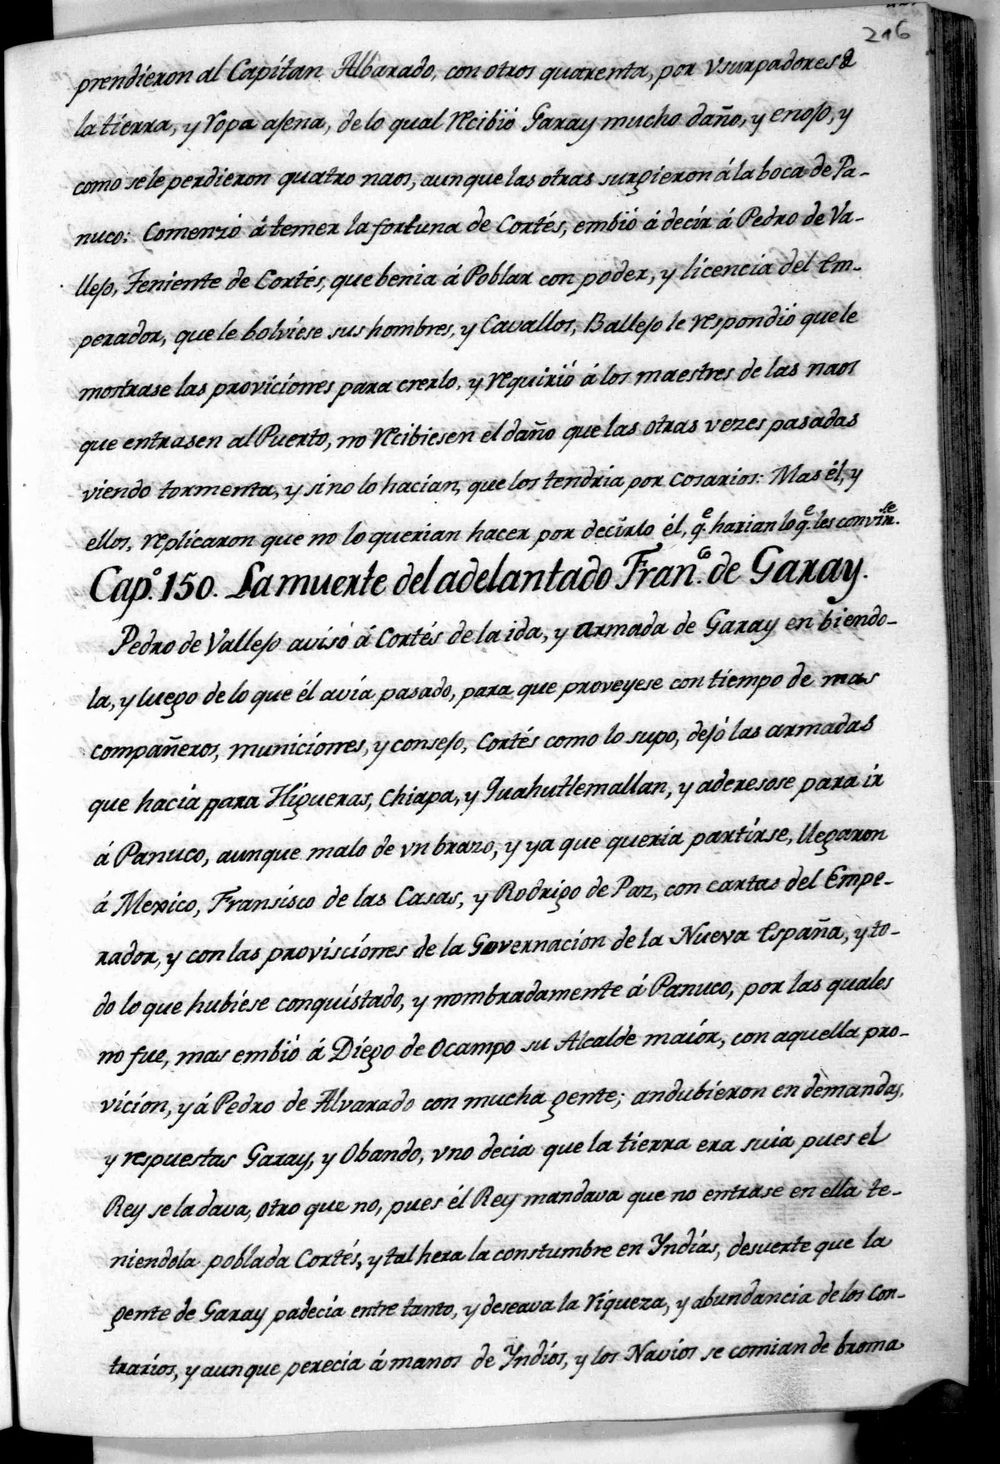 216
prendieron al Capitan Albarado, con otros quarenta, por vsurpadores d
la tierra, y ropa ajena, de lo qual recibió Garay mucho daño, y enojo, y
como sele perdieron quatro naos, aunque las otras surgieron á la boca de Pa-
nuco: Comenzó á temer la fortuna de Cortés, embió á decir á Pedro de Va-
llejo, Teniente de Cortés, que benia á Poblar con poder, y licencia del Em-
perador, que le bolviese sus hombres, y Cavallos, Ballejo le respondió que le
mostrase las proviciones para creerlo, y requirió á los maestres de las naos
que entrasen al Puerto, no recibiesen el daño que las otras vezes pasadas
viendo tormenta, y si no lo hacian, que los tendria por cosarios: Mas él, y
ellos, replicaron que no lo querian hacer por decirlo él, qe harian lo qe les convinse.
Capo. 150. La muerte del adelantado Franco. de Garay.
Pedro de Vallejo avisó á Cortés de la ida, y armada de Garay en biendo-
la, y luego de lo que él avia pasado, para que proveyese con tiempo de mas
compañeros, municiones, y consejo, Cortés como lo supo, dejó las armadas
que hacia para Higueras, Chiapa, y Quahutlemallan, y aderesose para ir
á Panuco, aunque malo de vn brazo, y ya que queria partirse, llegaron
á Mexico, Fransisco de las Casas, y Rodrigo de Paz, con cartas del Empe-
rador, y con las provisciones de la Governacion de la Nueva España, y to-
do lo que hubiese conquistado, y nombradamente á Panuco, por las quales
no fue, mas embió á Diego de Ocampo su Alcalde maior, con aquella pro-
vicion, y á Pedro de Alvarado con mucha gente; andubieron en demandas,
y respuestas Garay, y Obando, vno decia que la tierra era suia pues el
Rey se la dava, otro que no, pues él Rey mandava que no entrase en ella te-
niendola poblada Cortés, y tal hera la constumbre en Yndias, desuerte que la
gente de Garay padecia entre tanto, y deseava la riqueza, y abundancia de los con-
trarios, y aunque perecia á manos de Yndios, y los Navios se comian de broma